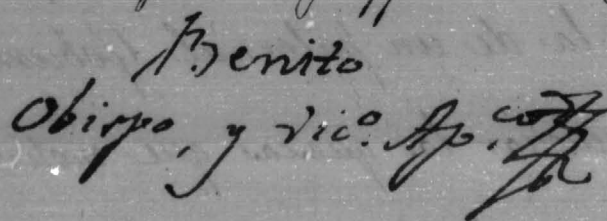 Benito
Obispo, y Vic.º Ap.co